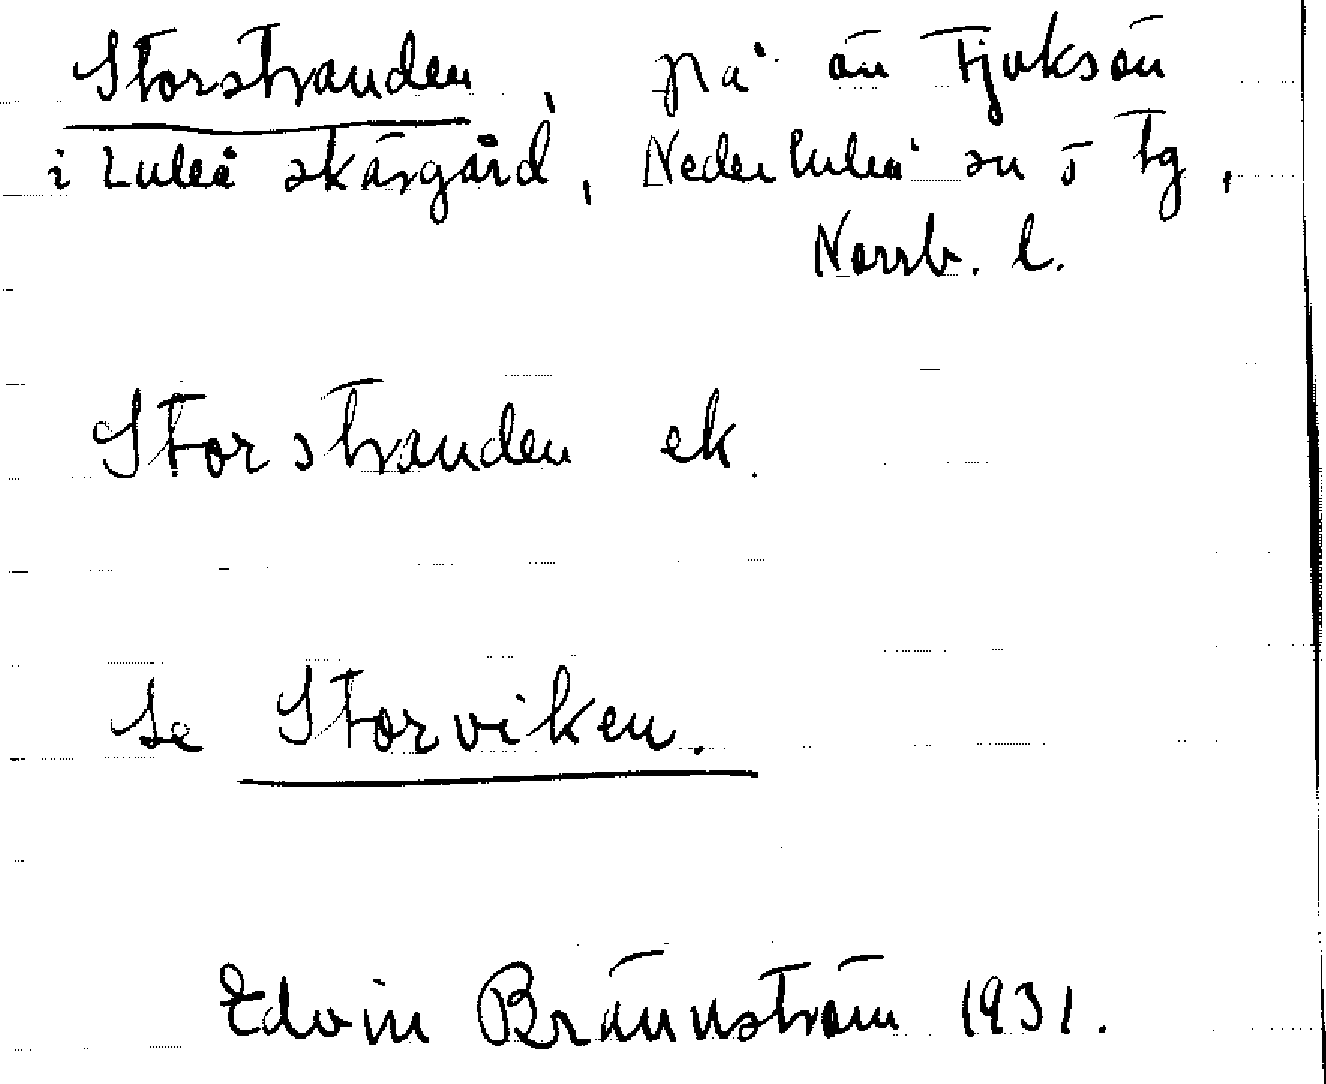 Storstranden, på ön Tjuksön
i Luleå skärgård, Nederluleå sn ö tg,
Norrb. l.
Storstranden ek.
Se Storviken.
Edvin Brännström 1931.